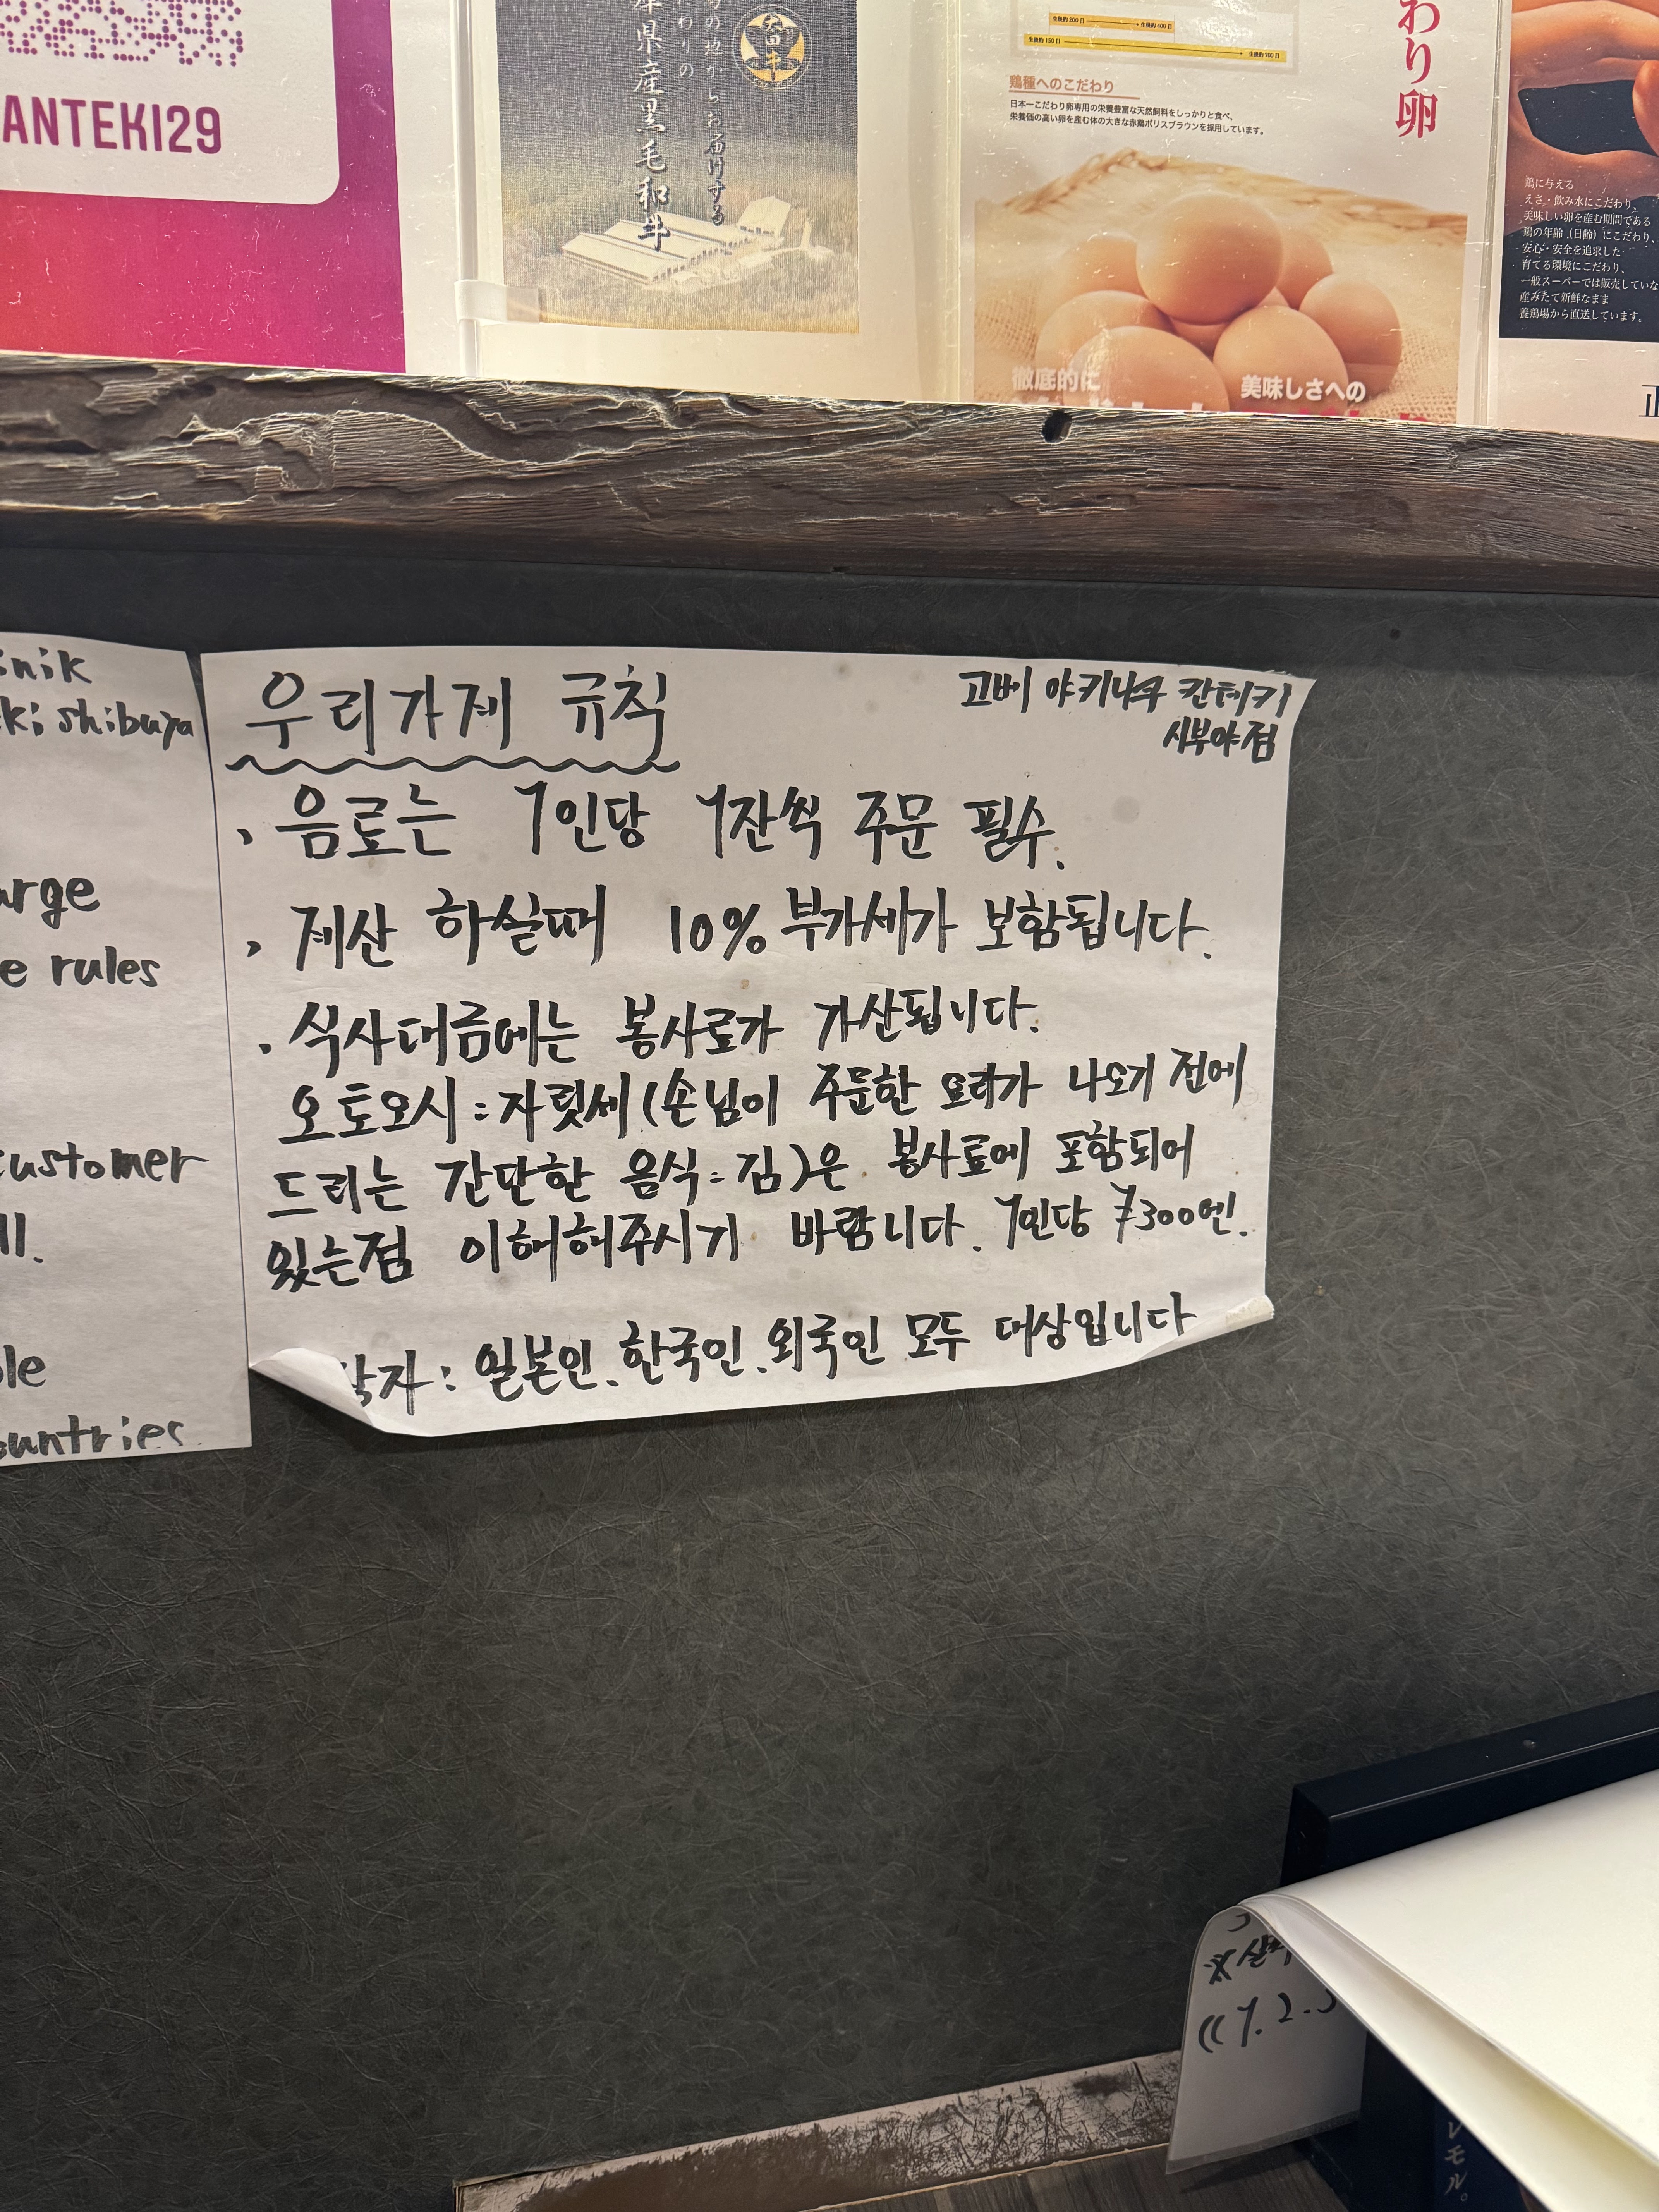 ANTEKI29
県産黒毛和牛
の地からお届けする
わりの
生後約200日
生後約400日
生後約150日
生後約700日
鶏種へのこだわり
日本一こだわり卵専用の栄養豊富な天然飼料をしっかりと食べ、
栄養価の高い卵を産む体の大きな赤鶏ボリスブラウンを採用しています。
わり卵
徹底的に
美味しさへの
鶏に与える
えさ・飲み水にこだわり、
美味しい卵を産む期間である
鶏の年齢（日齢）にこだわり、
安心・安全を追求した
育てる環境にこだわり、
一般スーパーでは販売していな
産みたて新鮮なまま
養鶏場から直送しています。
正
inik
ki shibuya
arge
e rules
customer
ll.
le
ountries
우리가게 규칙
고베 야키니쿠 칸테키
시부야점
· 음료는 1인당 1잔씩 주문 필수.
· 계산 하실때 10% 부가세가 보함됩니다.
· 식사대금에는 봉사료가 가산됩니다.
오토오시 : 자릿세(손님이 주문한 요리가 나오기 전에
드리는 간단한 음식 : 김)은 봉사료에 포함되어
있는점 이해해주시기 바랍니다. 1인당 ¥300엔.
상자 : 일본인. 한국인. 외국인 모두 대상입니다
((1.2.3
レモル。